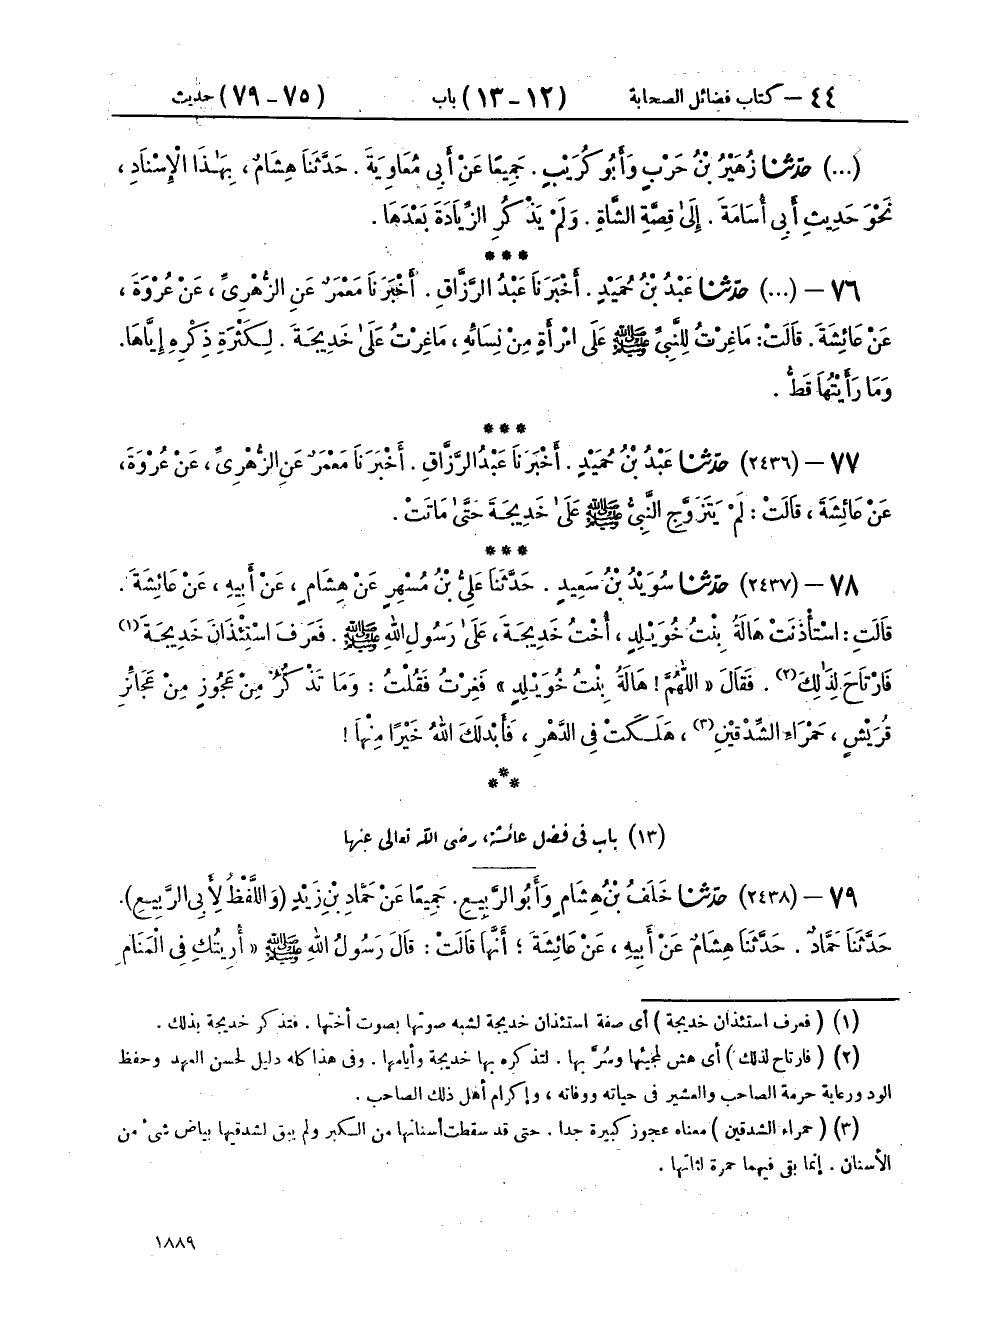 ٤٤ – كتاب فضائل الصحابة (١٢ – ١٣) باب (٧٥ – ٧٩) حديث
(...) حَدَّثَنَا زُهَيْرُ بْنُ حَرْبٍ وَأَبُو كُرَيْبٍ . جَمِيعًا عَنْ أَبِى مُعَاوِيَةَ . حَدَّثَنَا هِشَامٌ ، بِهَٰذَا الْإِسْنَادِ ،
نَحْوَ حَدِيثِ أَبِى أُسَامَةَ . إِلَىٰ قِصَّةِ الشَّاةِ . وَلَمْ يَذْكُرِ الزِّيَادَةَ بَعْدَهَا .
***
٧٦ – (...) حَدَّثَنَا عَبْدُ بْنُ حُمَيْدٍ . أَخْبَرَنَا عَبْدُ الرَّزَّاقِ . أَخْبَرَنَا مَعْمَرٌ عَنِ الزُّهْرِىِّ ، عَنْ عُرْوَةَ ،
عَنْ عَائِشَةَ . قَالَتْ : مَا غِرْتُ لِلنَّبِىِّ ﷺ عَلَى امْرَأَةٍ مِنْ نِسَائِهِ ، مَا غِرْتُ عَلَىٰ خَدِيجَةَ . لِكَثْرَةِ ذِكْرِهِ إِيَّاهَا .
وَمَا رَأَيْتُهَا قَطُّ .
***
٧٧ – (٢٤٣٦) حَدَّثَنَا عَبْدُ بْنُ حُمَيْدٍ . أَخْبَرَنَا عَبْدُ الرَّزَّاقِ . أَخْبَرَنَا مَعْمَرٌ عَنِ الزُّهْرِىِّ ، عَنْ عُرْوَةَ ،
عَنْ عَائِشَةَ ، قَالَتْ : لَمْ يَتَزَوَّجِ النَّبِىُّ ﷺ عَلَىٰ خَدِيجَةَ حَتَّىٰ مَاتَتْ .
***
٧٨ – (٢٤٣٧) حَدَّثَنَا سُوَيْدُ بْنُ سَعِيدٍ . حَدَّثَنَا عَلِىُّ بْنُ مُسْهِرٍ عَنْ هِشَامٍ ، عَنْ أَبِيهِ ، عَنْ عَائِشَةَ .
قَالَتِ : اسْتَأْذَنَتْ هَالَةُ بِنْتُ خُوَيْلِدٍ ، أُخْتُ خَدِيجَةَ ، عَلَىٰ رَسُولِ اللهِ ﷺ . فَعَرَفَ اسْتِئْذَانَ خَدِيجَةَ (١)
فَارْتَاحَ لِذَٰلِكَ (٢) . فَقَالَ « اللّٰهُمَّ ! هَالَةُ بِنْتُ خُوَيْلِدٍ » فَغِرْتُ فَقُلْتُ : وَمَا تَذْكُرُ مِنْ عَجُوزٍ مِنْ عَجَائِزِ
قُرَيْشٍ ، حَمْرَاءِ الشِّدْقَيْنِ (٣) ، هَلَكَتْ فِى الدَّهْرِ ، فَأَبْدَلَكَ اللهُ خَيْرًا مِنْهَا !
***
(١٣) باب فى فضل عائشة ، رضى الله تعالى عنها
٧٩ – (٢٤٣٨) حَدَّثَنَا خَلَفُ بْنُ هِشَامٍ وَأَبُو الرَّبِيعِ . جَمِيعًا عَنْ حَمَّادِ بْنِ زَيْدٍ (وَاللَّفْظُ لِأَبِى الرَّبِيعِ) .
حَدَّثَنَا حَمَّادٌ . حَدَّثَنَا هِشَامٌ عَنْ أَبِيهِ ، عَنْ عَائِشَةَ ؛ أَنَّهَا قَالَتْ : قَالَ رَسُولُ اللهِ ﷺ « أُرِيتُكِ فِى الْمَنَامِ
(١) ( فعرف استئذان خديجة ) أى صفة استئذان خديجة لشبه صوتها بصوت أختها . فتذكر خديجة بذلك .
(٢) ( فارتاح لذلك ) أى هش لمجيئها وسُرَّ بها . لتذكره بها خديجة وأيامها . وفى هذا كله دليل لحسن العهد وحفظ
الود ورعاية حرمة الصاحب والعشير فى حياته ووفاته ، وإكرام أهل ذلك الصاحب .
(٣) ( حمراء الشدقين ) معناه عجوز كبيرة جدا . حتى قد سقطت أسنانها من الكبر ولم يبق لشدقيها بياض شىء من
الأسنان . إنما بقى فيهما حمرة لثاتها .
١٨٨٩